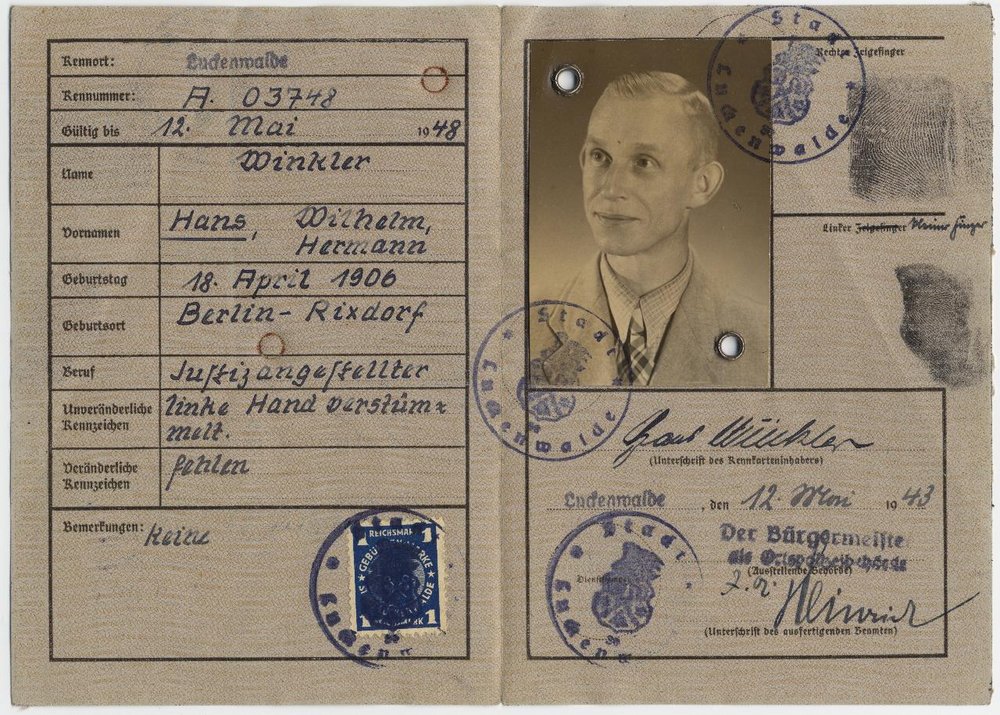 Kennort: Luckenwalde
Kennummer: A. 03748
Gültig bis 12. Mai 1948
Name Winkler
Vornamen Hans, Wilhelm,
Hermann
Geburtstag 18. April 1906
Geburtsort Berlin-Rixdorf
Beruf Justizangestellter
Unveränderliche Kennzeichen linke Hand verstüm=
melt.
Veränderliche Kennzeichen fehlen
Bemerkungen: Keine
1 REICHSMARK 1
GEBÜHRENMARKE
1
Stadt Luckenwalde
Rechter Zeigefinger
Stadt Luckenwalde
Linker Zeigefinger kleiner Finger
Stadt Luckenwalde
Hans Winkler
(Unterschrift des Kennkarteninhabers)
Luckenwalde, den 12. Mai 1943
Der Bürgermeister
als Ortspolizeibehörde
(Ausstellende Behörde)
Stadt Luckenwalde
(Unterschrift des ausfertigenden Beamten)